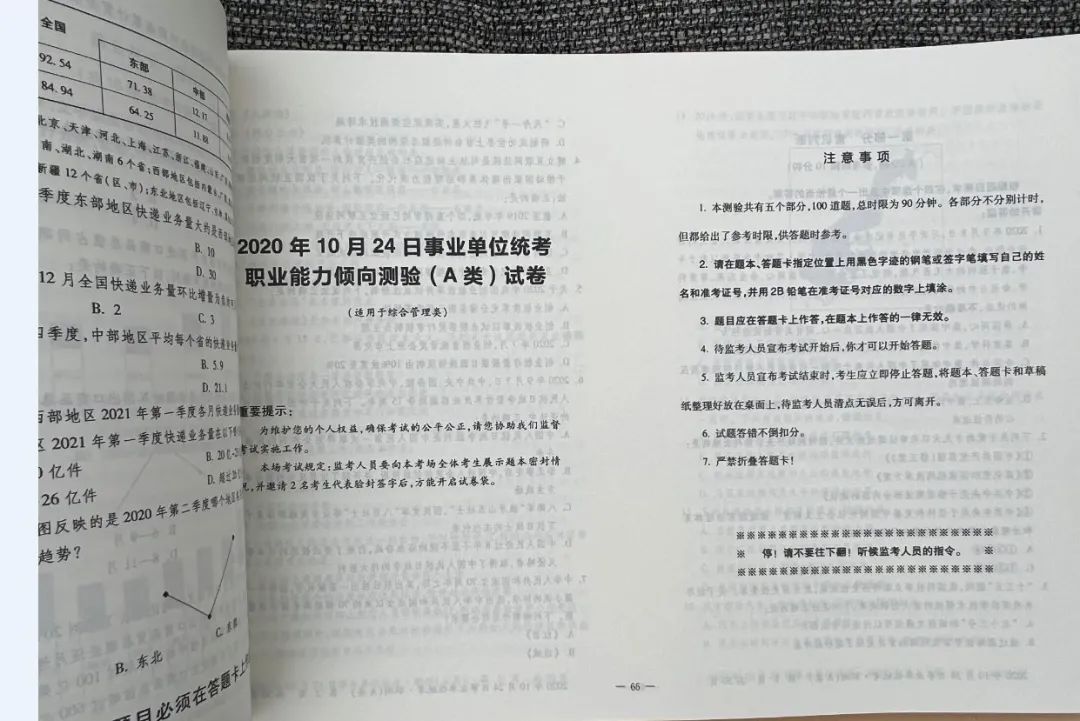 全国
东部
中部
92.54
71.38
12.17
84.94
64.25
11.88
北京、天津、河北、上海、江苏、浙江、福建、山东、广
南、湖北、湖南6个省;西部地区包括内蒙古、广
新疆12个省(区、市);东北地区包括辽宁、吉林
季度东部地区快递业务量大约是西部
B. 10
D. 30
12月全国快递业务量环比增量为
B. 2
C. 3
四季度,中部地区平均每个省的快递业务
B. 5.9
D. 21.1
西部地区2021年第一季度各月快递业务
区2021年第一季度快递业务量在以下哪
0亿件
B. 20亿
26亿件
D. 超过
图反映的是2020年第二季度哪个地区
趋势?
C. 东部
B. 东北
题目必须在答题卡上
2020年10月24日事业单位统考
职业能力倾向测验(A类)试卷
(适用于综合管理类)
重要提示:
为维护您的个人权益,确保考试的公平公正,请您协助我们监督
考试实施工作。
本场考试规定:监考人员要向本考场全体考生展示题本密封情
况,并邀请2名考生代表验封签字后,方能开启试卷袋。
注意事项
1. 本测验共有五个部分,100道题,总时限为90分钟。各部分不分别计时,
但都给出了参考时限,供答题时参考。
2. 请在题本、答题卡指定位置上用黑色字迹的钢笔或签字笔填写自己的姓
名和准考证号,并用2B铅笔在准考证号对应的数字上填涂。
3. 题目应在答题卡上作答,在题本上作答的一律无效。
4. 待监考人员宣布考试开始后,你才可以开始答题。
5. 监考人员宣布考试结束时,考生应立即停止答题,将题本、答题卡和草稿
纸整理好放在桌面上,待监考人员清点无误后,方可离开。
6. 试题答错不倒扣分。
7. 严禁折叠答题卡!
※※※※※※※※※※※※※※※※※※※※※※
※ 停!请不要往下翻!听候监考人员的指令。 ※
※※※※※※※※※※※※※※※※※※※※※※
— 66 —